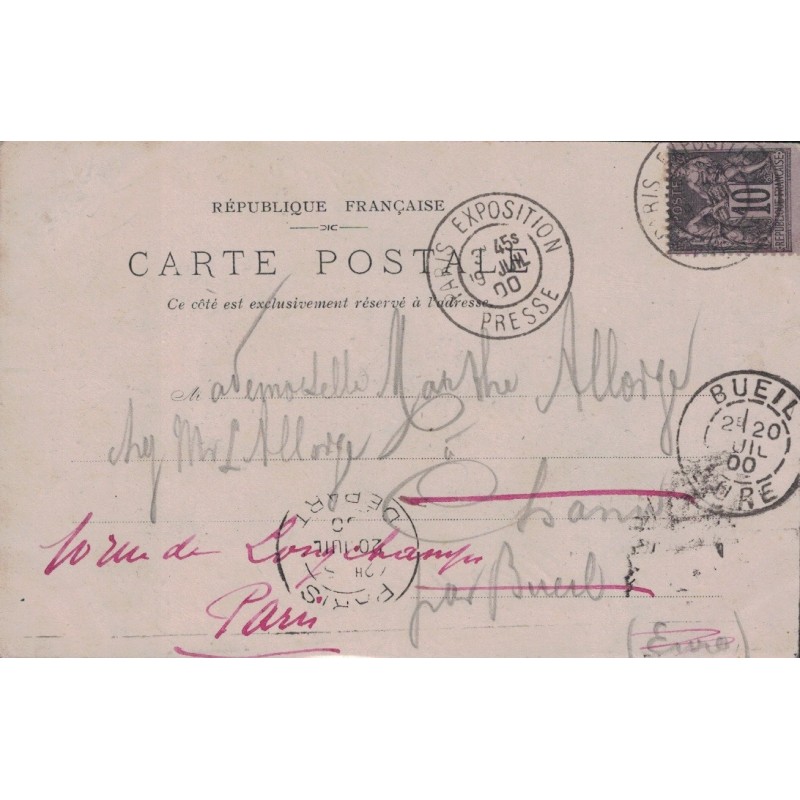 RÉPUBLIQUE FRANÇAISE
CARTE POSTALE
Ce côté est exclusivement réservé à l'adresse
PARIS EXPOSITION
45S
JUIL
00
PRESSE
PARIS EXPOSITION
POSTES
10
RÉPUBLIQUE FRANÇAISE
Mademoiselle Marthe Allorge
chez Mr L Allorge
à
par Bueil
(Eure)
BUEIL
2E 20
JUIL
00
EURE
10 rue de Longchamps
Paris
PARIS
20 JUIL
00
DEPART